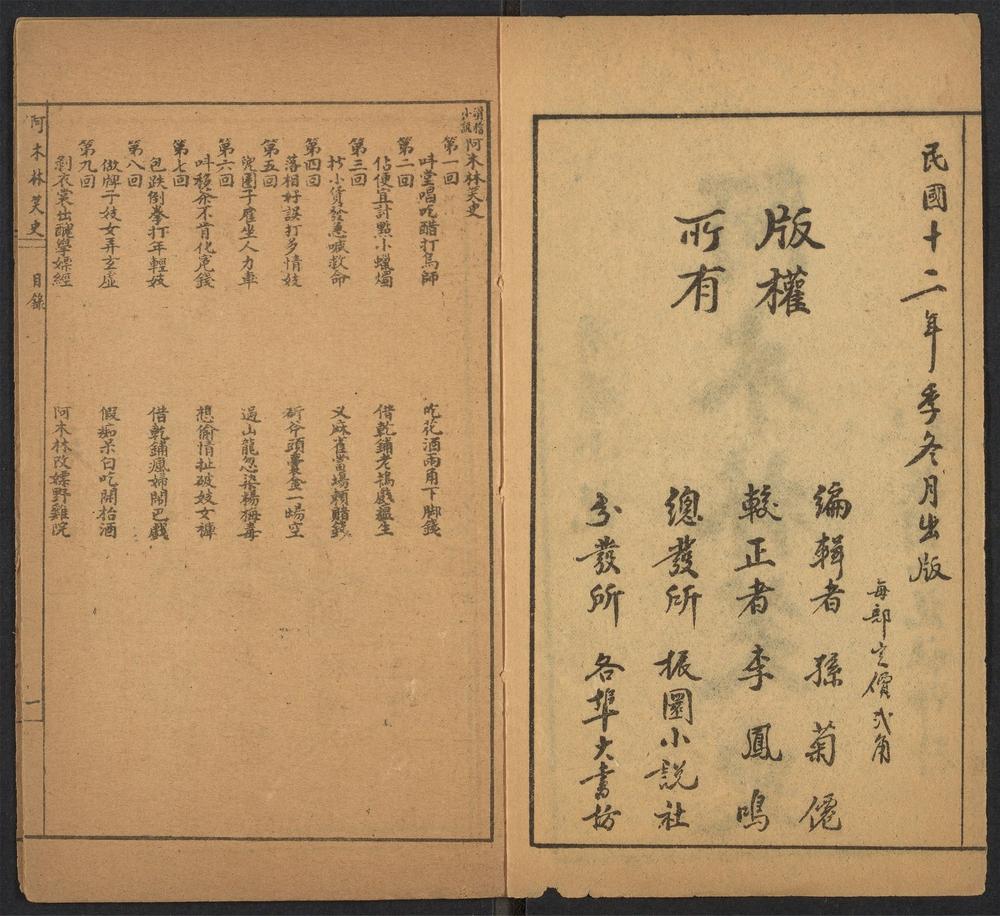 民國十二年季冬月出版
每部定價貳角
版權
所有
編輯者 孫菊僊
較正者 李鳳鳴
總發所 振圜小說社
分發所 各埠大書坊
滑稽小說 阿木林笑史
第一回
叫堂唱吃醋打烏師 吃花酒兩角下脚錢
第二回
佔便宜討點小蠟燭 借乾鋪老鴇戲瘟生
第三回
打小貨發急喊救命 叉麻雀當場賴賭錢
第四回
落相好誤打多情妓 斫斧頭囊金一場空
第五回
兜圈子雇坐人力車 過山龍忽染楊梅毒
第六回
叫移茶不肯化冤錢 想偷情扯破妓女褲
第七回
包跌倒拳打年輕妓 借乾鋪瘋婦鬧巴戲
第八回
做牌子妓女弄玄虛 假痴呆白吃開枱酒
第九回
剝衣裳出醜學嫖經 阿木林改嫖野雞院
阿木林笑史 目錄 一